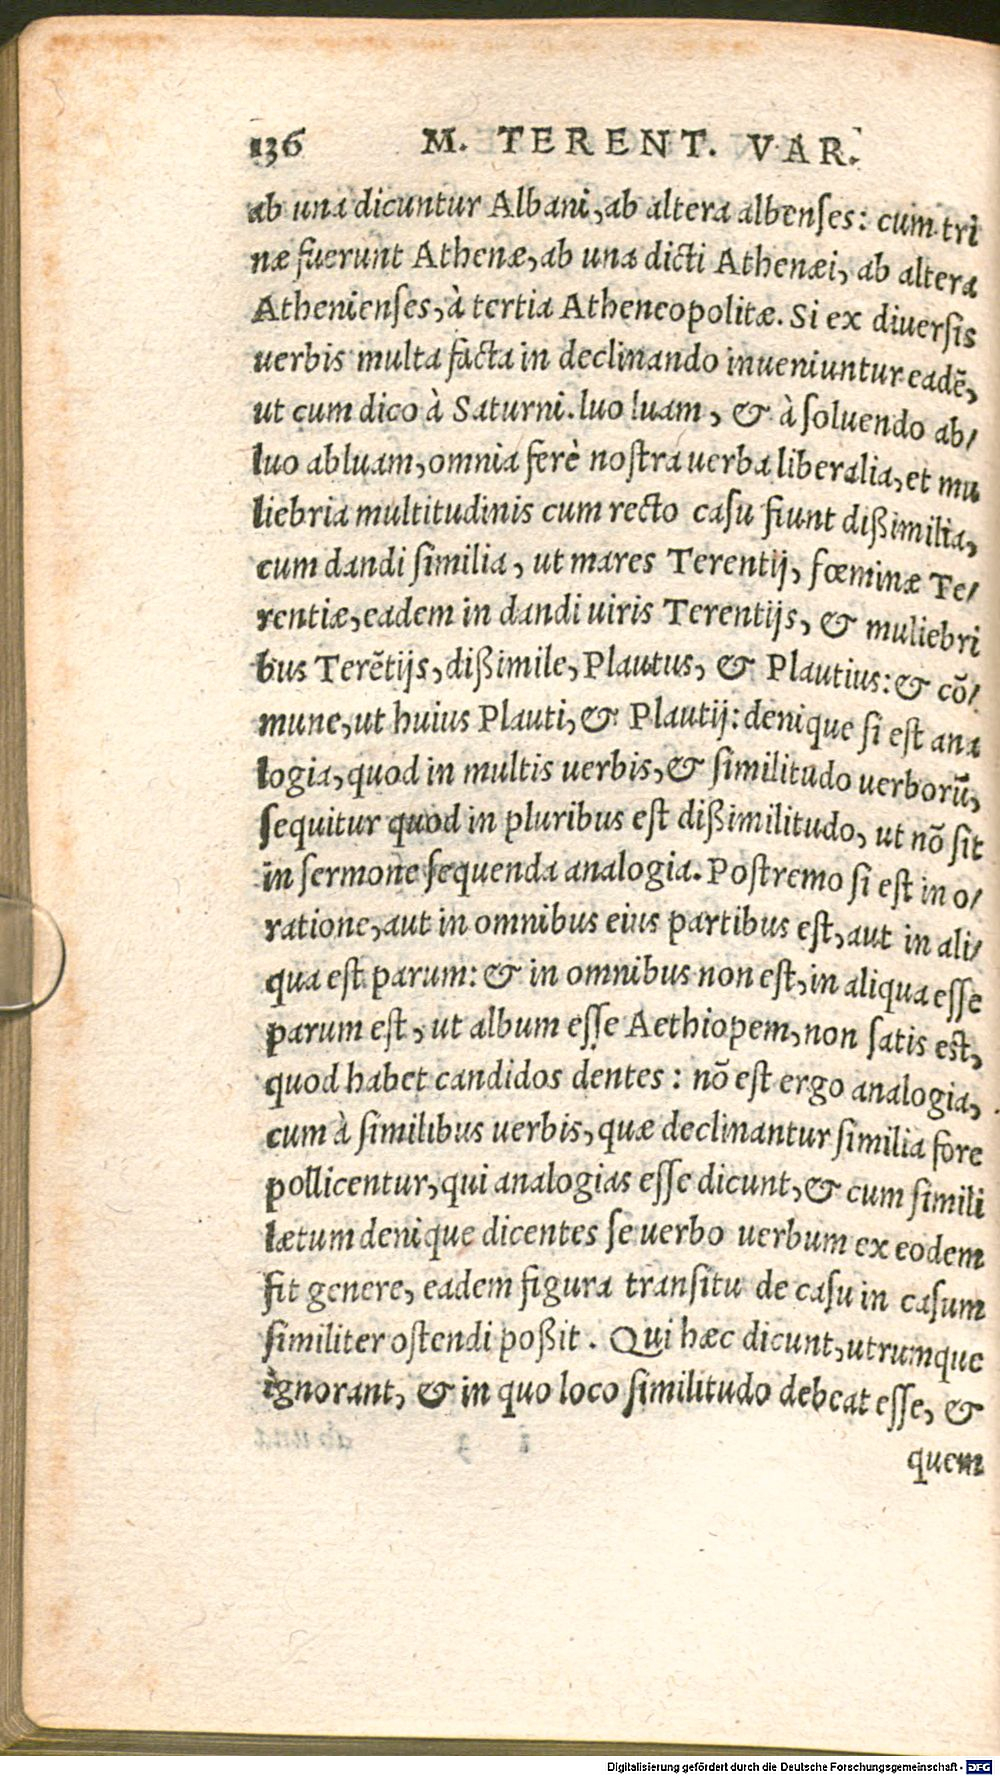 136 M. TERENT. VAR.
ab una dicuntur Albani, ab altera albenſes: cum tri
næ fuerunt Athenæ, ab una dicti Athenæi, ab altera
Athenienſes, à tertia Atheneopolitæ. Si ex diuerſis
uerbis multa facta in declinando inueniuntur eadē,
ut cum dico à Saturni. luo luam, & à ſoluendo ab/
luo abluam, omnia ferè noſtra uerba liberalia, et mu
liebria multitudinis cum recto caſu fiunt dißimilia,
cum dandi ſimilia, ut mares Terentij, fœminæ Te/
rentiæ, eadem in dandi uiris Terentijs, & muliebri
bus Terētijs, dißimile, Plautus, & Plautius: & cō/
mune, ut huius Plauti, & Plautij: denique ſi eſt ana
logia, quod in multis uerbis, & ſimilitudo uerborū,
ſequitur quod in pluribus eſt dißimilitudo, ut nō ſit
in ſermone ſequenda analogia. Poſtremo ſi eſt in o/
ratione, aut in omnibus eius partibus eſt, aut in ali/
qua eſt parum: & in omnibus non eſt, in aliqua eſſe
parum eſt, ut album eſſe Aethiopem, non ſatis eſt,
quod habet candidos dentes: nō eſt ergo analogia,
cum à ſimilibus uerbis, quæ declinantur ſimilia fore
pollicentur, qui analogias eſſe dicunt, & cum ſimili
lætum denique dicentes ſe uerbo uerbum ex eodem
ſit genere, eadem figura tranſitu de caſu in caſum
ſimiliter oſtendi poßit. Qui hæc dicunt, utrumque
ignorant, & in quo loco ſimilitudo debeat eſſe, &
quem
Digitalisierung gefördert durch die Deutsche Forschungsgemeinschaft - DFG